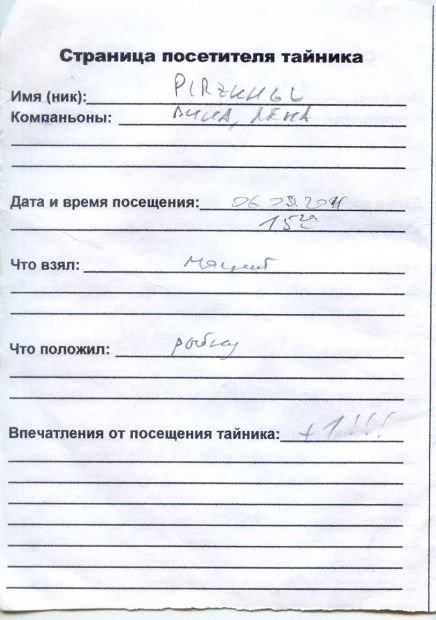 Страница посетителя тайника
Имя (ник):
Компаньоны: ЛЕНА
Дата и время посещения: 06
15
Что взял: магнит
Что положил: рыбку
Впечатления от посещения тайника: +1!!!